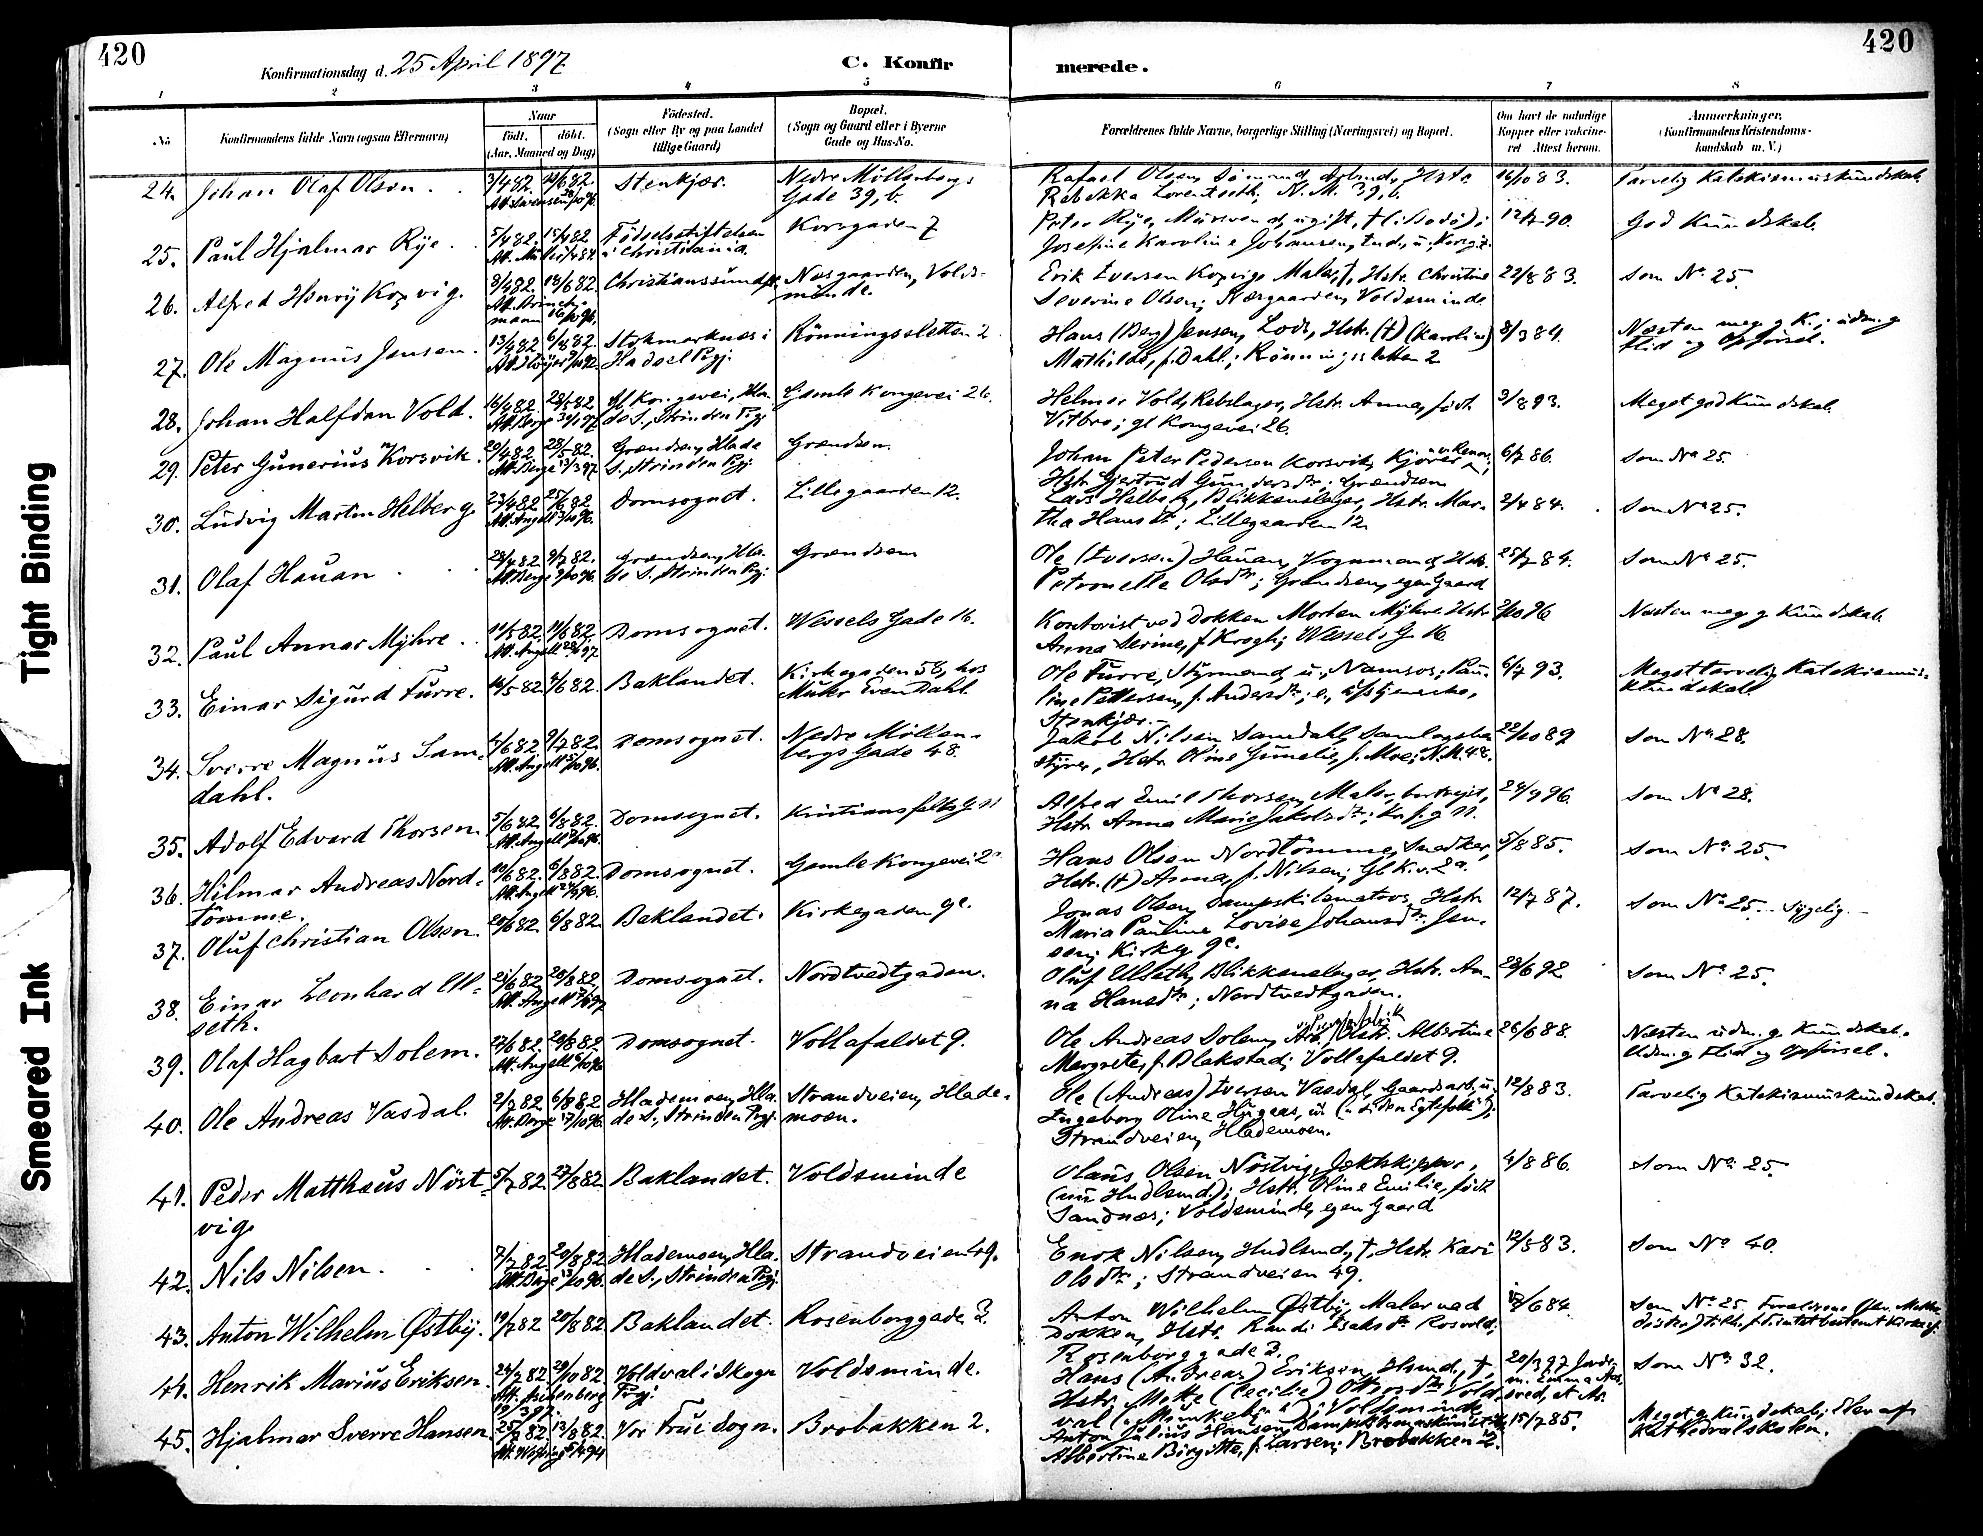 420
420
Konfirmationsdag d. 25 April 1897
C. Konfir
merede.
1 2 3 4 5 6 7 8
No
Konfirmandens fulde Navn (ogsaa Efternavn)
Naar
født. døbt.
(Aar, Maaned og Dag)
Fødested.
(Sogn eller By og paa Landet
tillige Gaard)
Bopæl.
(Sogn og Gaard eller i Byerne
Gade og Hus-No.
Forældrenes fulde Navne, borgerlige Stilling (Næringsvei) og Bopæl.
Om havt de naturlige
Kopper eller vakcine-
ret Attest herom.
Anmærkninger.
(Konfirmandens Kristendoms-
kundskab m. V.)
24. Johan Olaf Olsen. 3/4 82. Stenkjær. Nedre Möllenbergs
Gade 39, b.
Rafael Olsen, Sömand, Hstr.
Rebekka N. M. 39, b.
16/10 83. Tarvelig Katekismuskundskab.
25. Paul Hjalmar Rye. 5/4 82. 15/4 82. Födselsstiftelsen
i Christiania. Korsgaden 7
Peter Rye, ugift, † (i Bodö);
Josefine Karoline Johansen,
12/7 90. God Kundskab.
26. Alfred Henry Kopvig. Christianssund. Næsgaarden, Volds-
minde.
Erik Iversen Kopvig, Maler, †, Hstr. Christine
Severine Olsen; Næsgaarden, Voldsminde
22/8 83. Som No 25.
27. Ole Magnus Jensen. 13/4 82 6/8 82. Stokmarknes i
Hadsel Pgj. Rönningsletten 2
Hans (Berg) Jensen, Lods, Hstr. (†) (Karoline)
Mathilde, f. Dahl; Rönningsletten 2
8/3 84. Næsten meg. g. K.; udm. g.
Flid og Opförsel.
28. Johan Halfdan Vold. 16/4 82 Gl. Kongevei, Hla-
de S., Strinden Pgj. Gamle Kongevei 26.
Helmer Vold, Rebslager, Hstr. Anna, född
Vitbro; gl. Kongevei 26.
3/8 93. Meget god Kundskab.
29. Peter Gunerius Korsvik. 20/4 82 28/5 82. Grændsen, Hlade
S., Strinden Pgj. Grændsen.
Johan Peter Pedersen Korsvik, Kjörer
Hstr. Gjertrud Gundersdtr; Grændsen
6/7 86. Som No 25.
30. Ludvig Martin Helberg 23/4 82 25/6 82. Domsognet. Lillegaarden 12.
Lars Helberg, Blikkenslager, Hstr. Mar-
tha Hansdtr; Lillegaarden 12
2/4 84. Som No 25.
31. Olaf Hauan 28/4 82 9/7 82. Grændsen, Hla-
de S., Strinden Pgj. Grændsen
Ole (Iversen) Hauan, Vognmand, Hstr.
Petronelle Olsdtr; Grændsen, egen Gaard
25/7 84. Som No 25.
32. Paul Annar Myhre. 11/5 82. 11/6 82. Domsognet. Wessels Gade 16.
Kontorist ved Dokken Morten Myhre, Hstr.
Anna Serine, f. Krogh; Wessels G. 16
Næsten meg. g. Kundskab.
33. Einar Sigurd Furre. Baklandet. Kirkegaden 58, hos
Murer Even Dahl
Ole Furre, Styrmand, u., Namsos; Pau-
line Pettersen, f. Andersdtr;
Stenkjær.
6/7 93. Meget tarvelig Katekismus-
kundskab
34. Sverre Magnus Sam-
dahl. 4/6 82. 9/7 82. Domsognet. Nedre Möllen-
bergs Gade 48.
Jakob Nilsen Samdahl, Samlagsbe-
styrer, Hstr. Oline Gunelie, f. Moe; N. M. 48.
22/10 89 Som No 28.
35. Adolf Edvard Thorsen. 5/6 82. 6/8 82. Domsognet. Kristiansfeldts G. 11
Alfred Emil Thorsen, Maler, bortreist,
Hstr. Anna Marie Jakobsdtr; Kr. f. g. 11.
24/9 96. Som No 28.
36. Hilmar Andreas Nord-
tömme. 10/6 82. 6/8 82. Domsognet. Gamle Kongevei 2a
Hans Olsen Nordtömme, Snedker,
Hstr. (†) Anna, f. Nilsen; Gl. K. v. 2a.
5/8 85. Som No 25.
37. Oluf Christian Olsen. 20/6 82 6/8 82. Baklandet. Kirkegaden 9c.
Jonas Olsen, Dampskibsmatros, Hstr.
Maria Pauline Lovise Johansdtr Jen-
sen; Kirkeg. 9c.
12/7 87. Som No 25. Sygelig.
38. Einar Leonhard Ell-
seth. Domsognet. Nordtvedtgaden.
Oluf Ellseth, Blikkenslager, Hstr. An-
na Hansdtr; Nordtvedtgaden.
28/6 92 Som No 25.
39. Olaf Hagbart Solem. 27/6 82. Domsognet. Vollafaldet 9.
Ole Andreas Solem, Arb., Hstr. Albertine
Margrete, f. Blakstad; Vollafaldet 9.
26/6 88. Næsten udm. g. Kundskab.
Udm. g. Flid og Opförsel.
40. Ole Andreas Vasdal. 2/7 82 6/8 82 Hlademoen, Hla-
de S., Strinden Pgj. Strandveien, Hlade-
moen.
Ole (Andreas) Iversen Vasdal, Gaardsarb. u.
Ingeborg Oline
Strandveien, Hlademoen.
12/8 83. Tarvelig Katekismuskundskab.
41. Peder Matthæus Nöst-
vig 5/7 82 27/8 82 Baklandet. Voldsminde
Olaus Olsen Nöstvig, Jægtskipper,
Hstr. Oline Emilie, född
Sandnæs; Voldsminde, egen Gaard
4/8 86. Som No 25.
42. Nils Nilsen. 7/7 82 20/8 82 Hlademoen, Hla-
de S., Strinden Pgj. Strandveien 49.
Enok Nilsen, Husmd., †, Hstr. Kari
Olsdtr; Strandveien 49.
12/5 83. Som No 40.
43. Anton Wilhelm Østby. 19/7 82 20/8 82 Baklandet. Rosenborggade 2.
Anton Wilhelm Østby, Maler ved
Dokken, Hstr. Randi Isaksdtr Rosvold;
Rosenborggade 2.
Som No 25.
44. Henrik Marius Eriksen. 24/7 82 29/10 82 Voldval i Skogn
Pgj. Voldsminde.
Hans (Andreas) Eriksen, Husmd., †,
Hstr. Mette (Cecilie) Vold-
val Voldsminde
20/3 97 Som No 32.
45. Hjalmar Sverre Hansen. Vor Frue Sogn. Brobakken 2.
Anton Julius Hansen,
Albertine Birgitte, f. Larsen; Brobakken 2.
15/7 85. Meget g. Kundskab; Elev af
Kathedralskolen.
Tight Binding
Smeared Ink